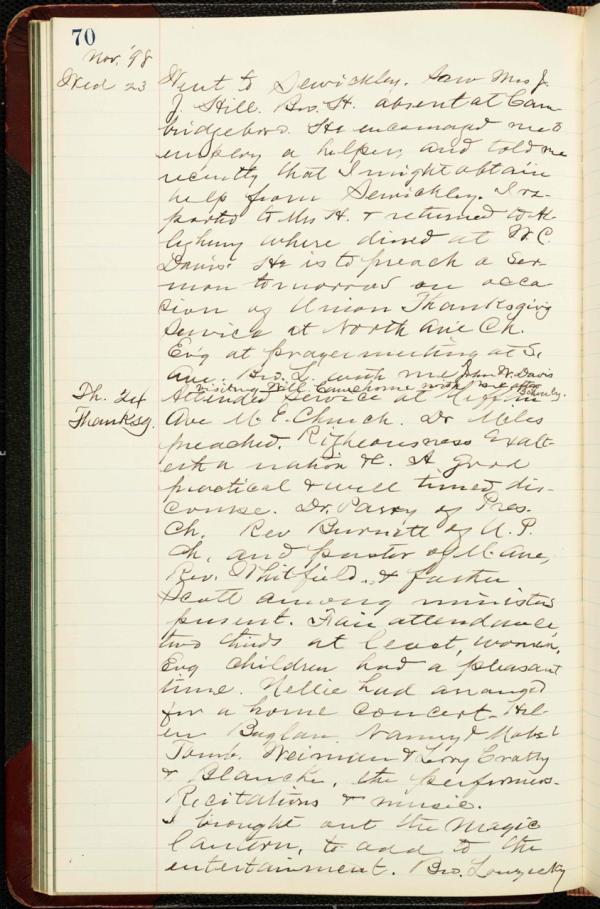 70
Nov. '98
Wed 23 Went to Sewickley. Saw Mrs J.
J. Hill. Bro. H. absent at Cam-
bridgeboro. He encouraged me to
employ a helper, and told me
recently that I might obtain
help from Sewickley. I re-
ported to Mrs H. & returned to Al-
legheny where dined at W. C.
Davis'. He is to preach a ser-
mon tomorrow on occa
sion of Union Thanksgiving
Service at North Ave Ch.
Ev'g at prayermeeting at S.
Ave. Bro. L. with me. John W. Davis
visiting Will. Came home with me after
Th. 24 Attended service at Mifflin
Thanksg. Ave M. E. Church. Dr Miles
preached. Righteousness Exalt-
eth a nation &c. A good
practical & well timed dis-
course. Dr. Parry of Pres.
Ch. Rev Burnett of U. P.
Ch, and pastor of M. Ave,
Rev. Whitfield, & father
Scott among ministers
present. Fair attendance,
two thirds at least, women.
Evg children had a pleasant
time. Nellie had arranged
for a home concert. Hel-
en, Nanny & Mabel
Tomb. Weiman & Leroy
& Blanche, the performers.
Recitations & music.
I brought out the Magic
lantern, to add to the
entertainment. Bro.